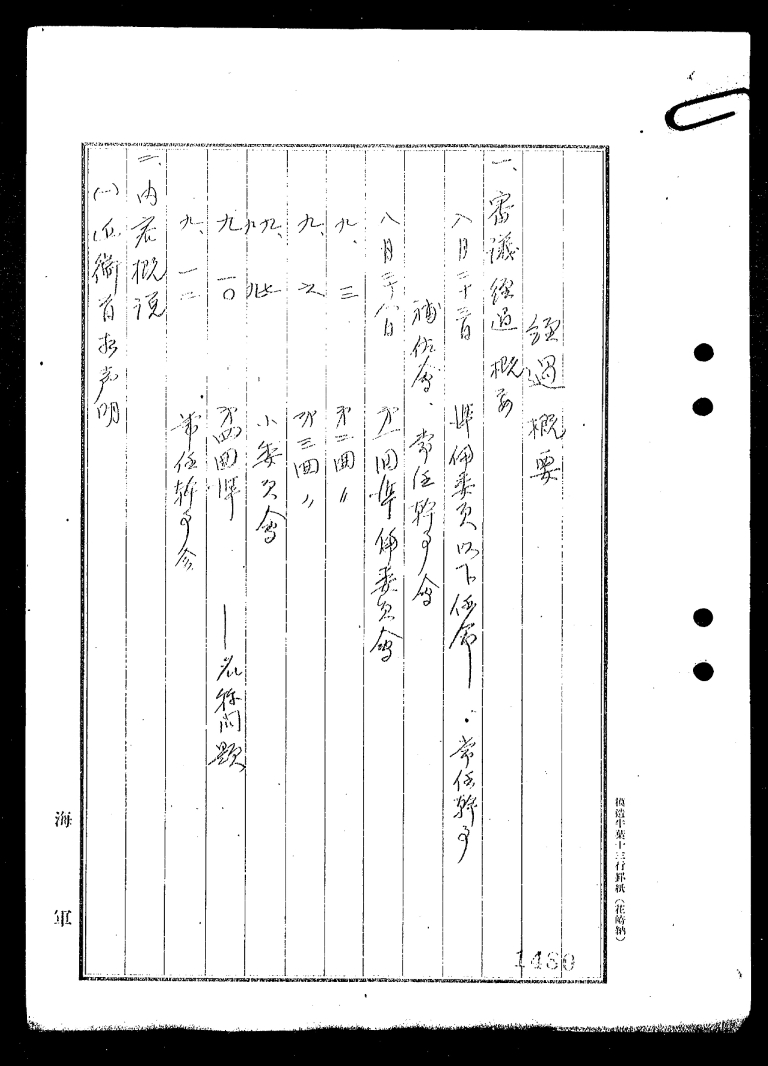 経過概要
一、審議経過概要
八月二十三日 準備委員以下任命 ・常任幹事
補佐会、常任幹事会
八月二十八日 第一回準備委員会
九、三 第二回〃
九、六 第三回〃
九、 小委員会
九、一〇 第四回準 ー名称問題
九、一二 常任幹事会
二、内容概説
(一)近衛首相声明
海軍
模造半葉十三行罫紙
1480